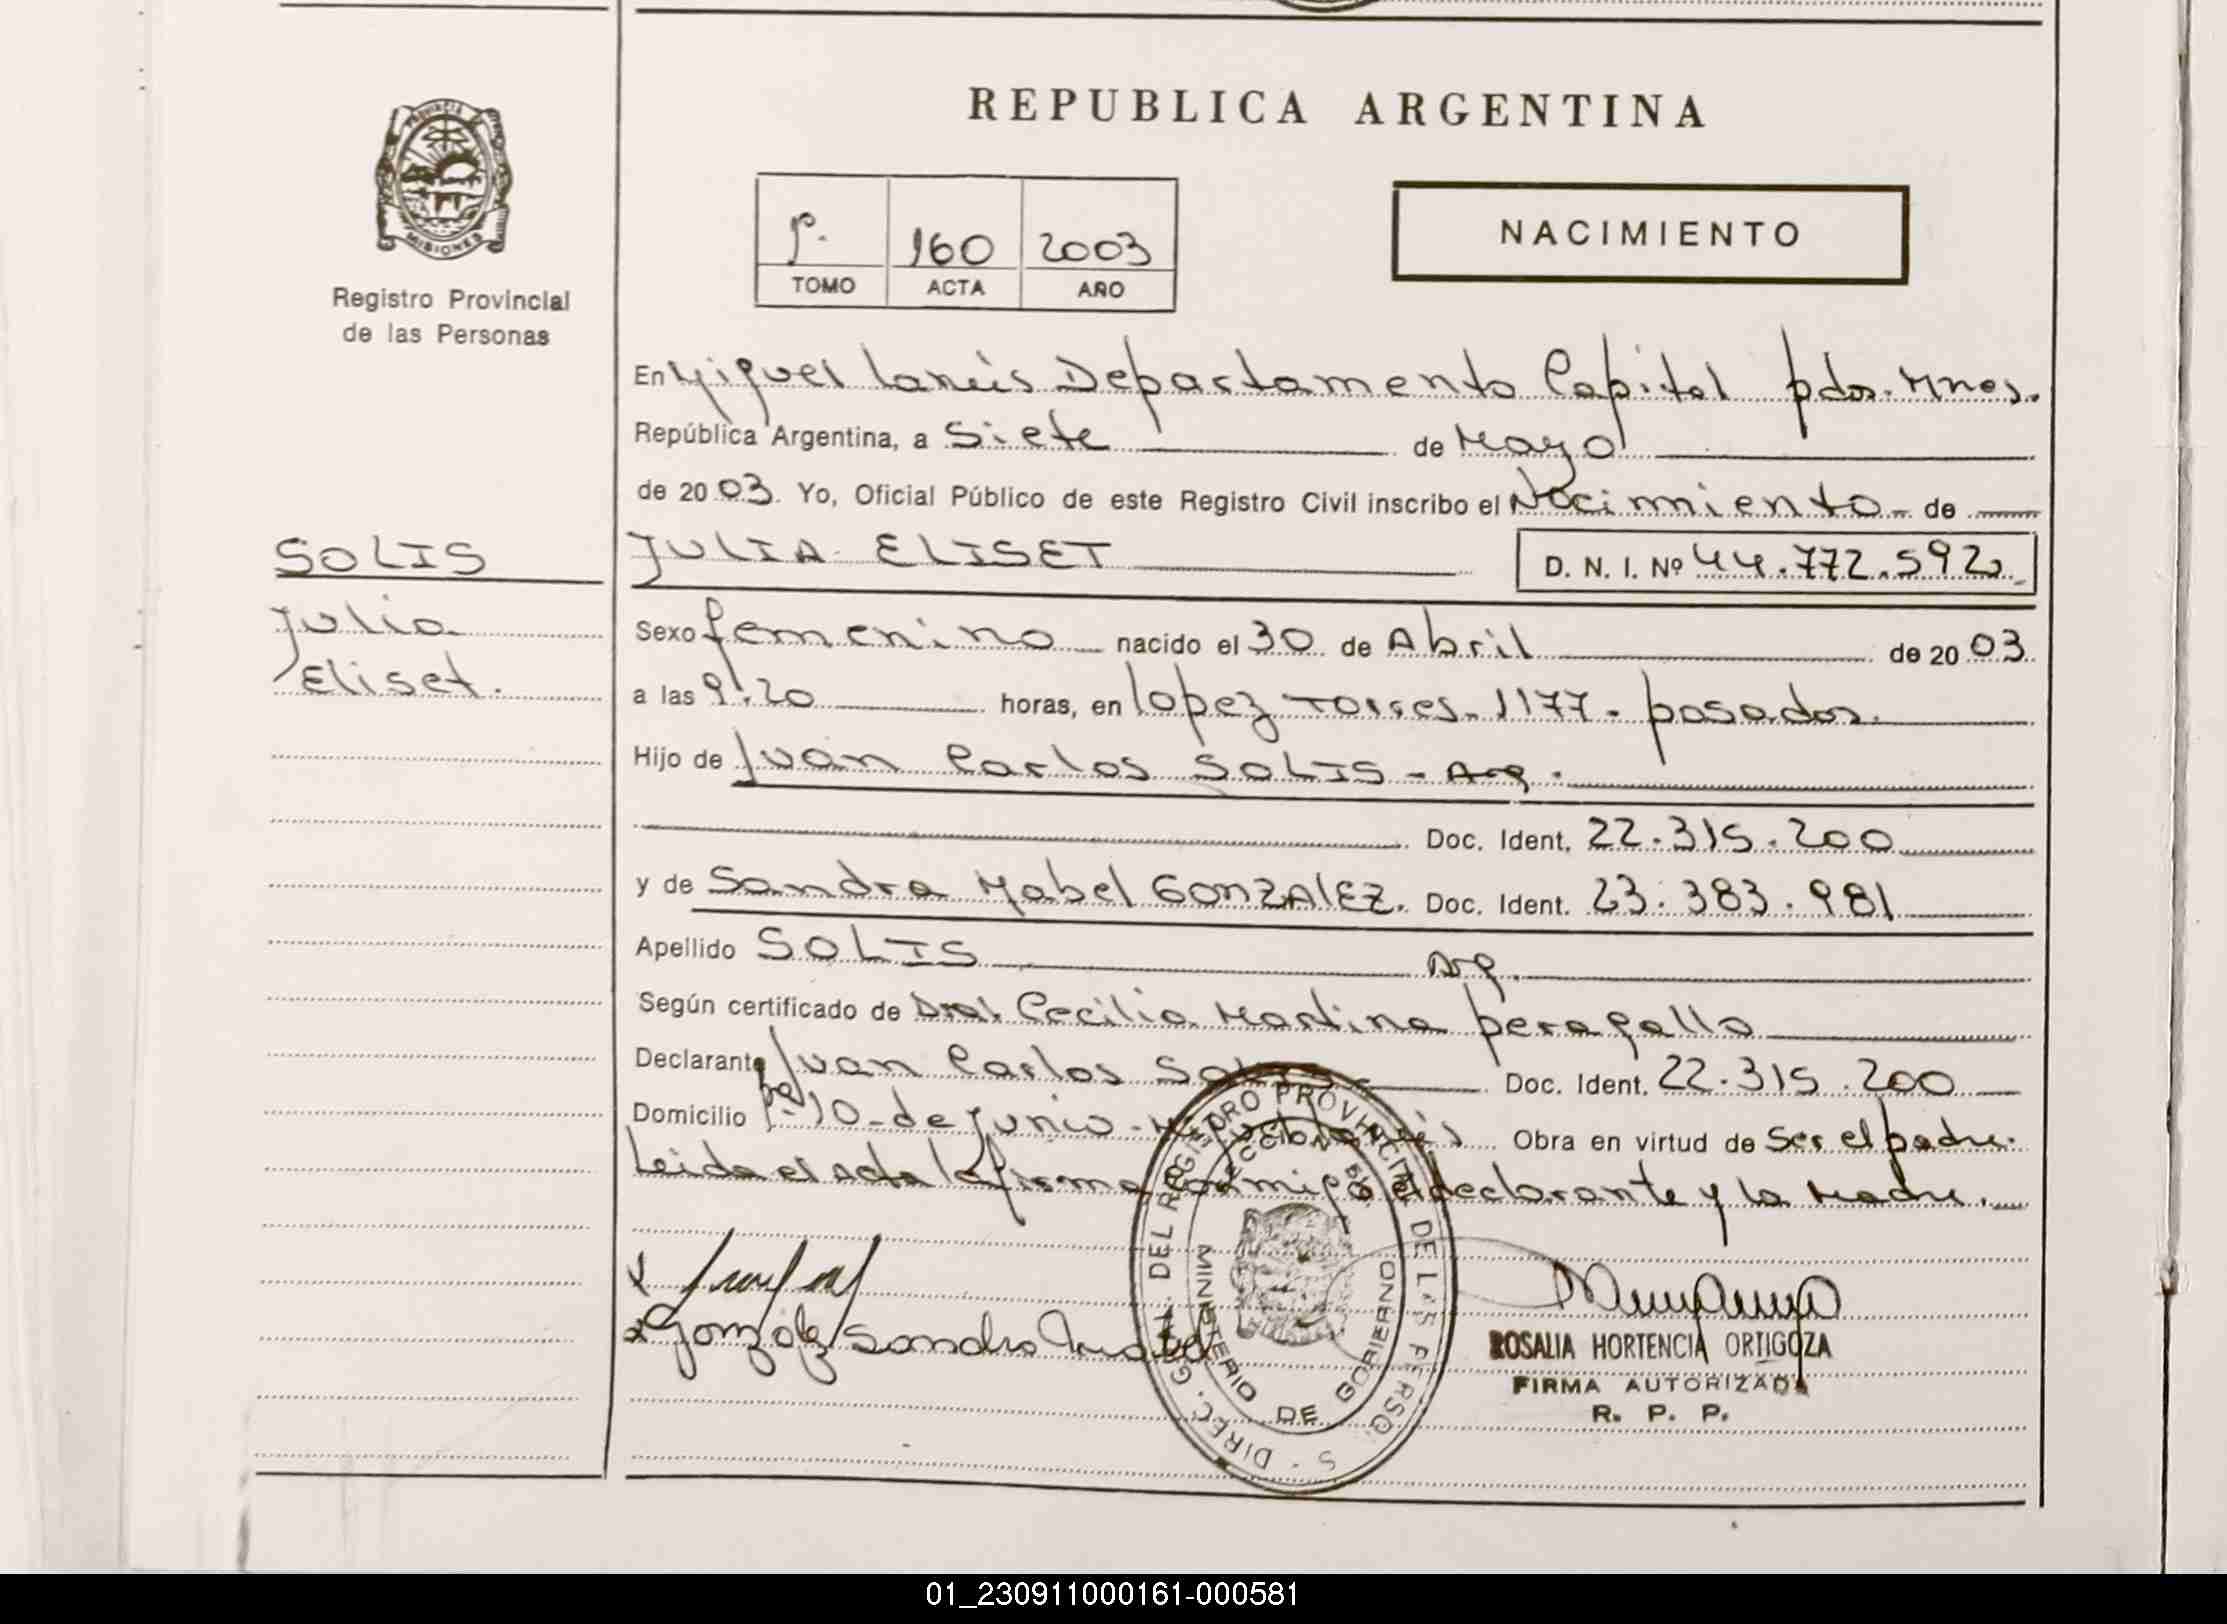 REPUBLICA ARGENTINA
PROVINCIA
MISIONES
Registro Provincial
de las Personas
1º. 160 2003
TOMO ACTA AÑO
NACIMIENTO
En Miguel Lanús Departamento Capital pdas. Mnes.
República Argentina, a Siete de Mayo
de 2003. Yo, Oficial Público de este Registro Civil inscribo el Nacimiento de
SOLIS
Julia
Eliset.
JULIA ELISET D. N. I. Nº 44.772.592
Sexo femenino nacido el 30 de Abril de 2003
a las 9:20 horas, en Lopez Torres 1177 - posadas.
Hijo de Juan Carlos SOLIS - Arg.
Doc. Ident. 22.315.200
y de Sandra Mabel GONZALEZ. Doc. Ident. 23.383.981
Apellido SOLIS Arg.
Según certificado de Dra. Cecilia Martina peragallo
Declarante Juan Carlos SOLIS Doc. Ident. 22.315.200
Domicilio 10 de Junio Obra en virtud de Ser el padre.
Leida el acta la firma conmigo el declarante y la Madre.
Gonzalez Sandra Mabel
DIREC. GRAL. DEL REGISTRO PROVINCIAL DE LAS PERSONAS
MINISTERIO DE GOBIERNO
ROSALIA HORTENCIA ORTIGOZA
FIRMA AUTORIZADA
R. P. P.
01_230911000161-000581